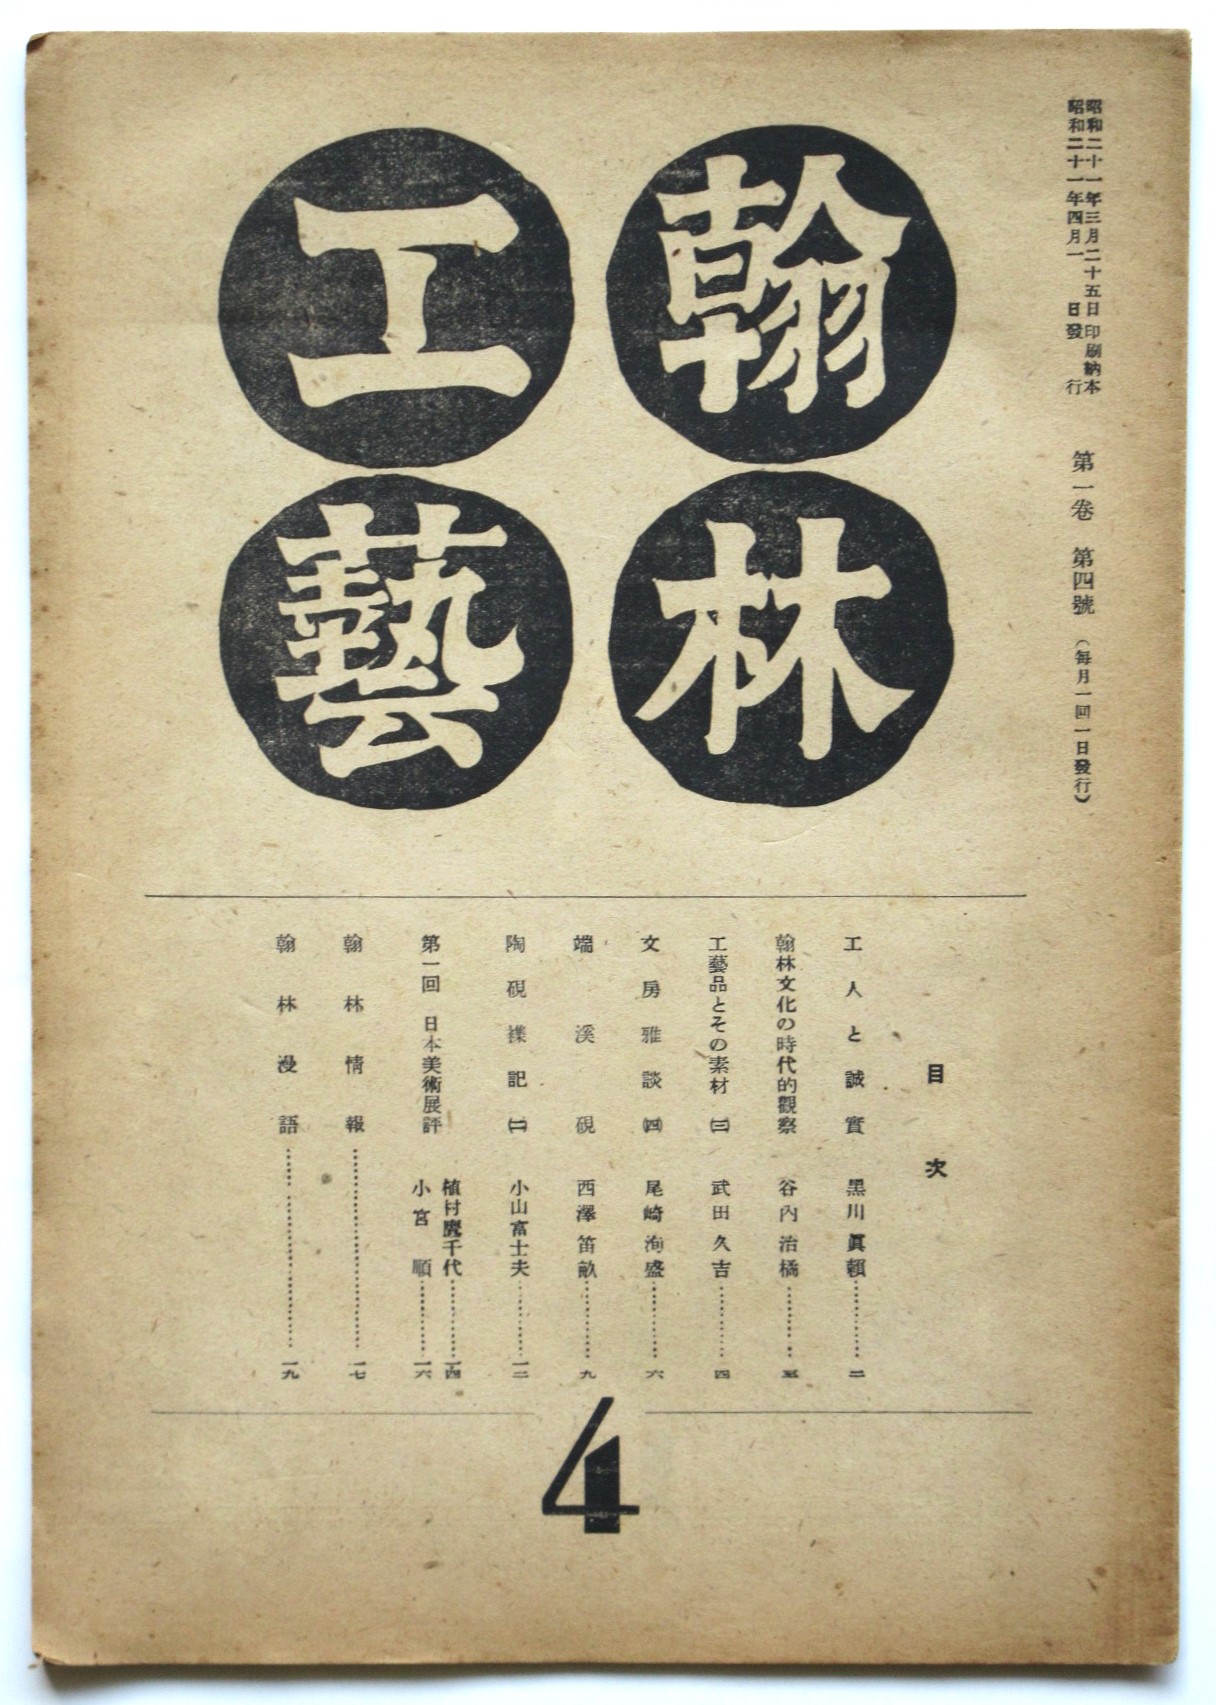 昭和二十一年三月二十五日印刷納本
昭和二十一年四月一日發行
第一卷 第四號 (每月一回一日發行)
翰林
工藝
目次
工人と誠實 黑川眞賴………二
翰林文化の時代的觀察 谷內治橘………
工藝品とその素材 (三) 武田久吉………四
文房雅談 (四) 尾崎洵盛………六
端溪硯 西澤笛畝………九
陶硯襍記 (二) 小山富士夫………一二
第一回 日本美術展評 植村鷹千代………一四
小宮順………一六
翰林情報………一七
翰林漫語………一九
4